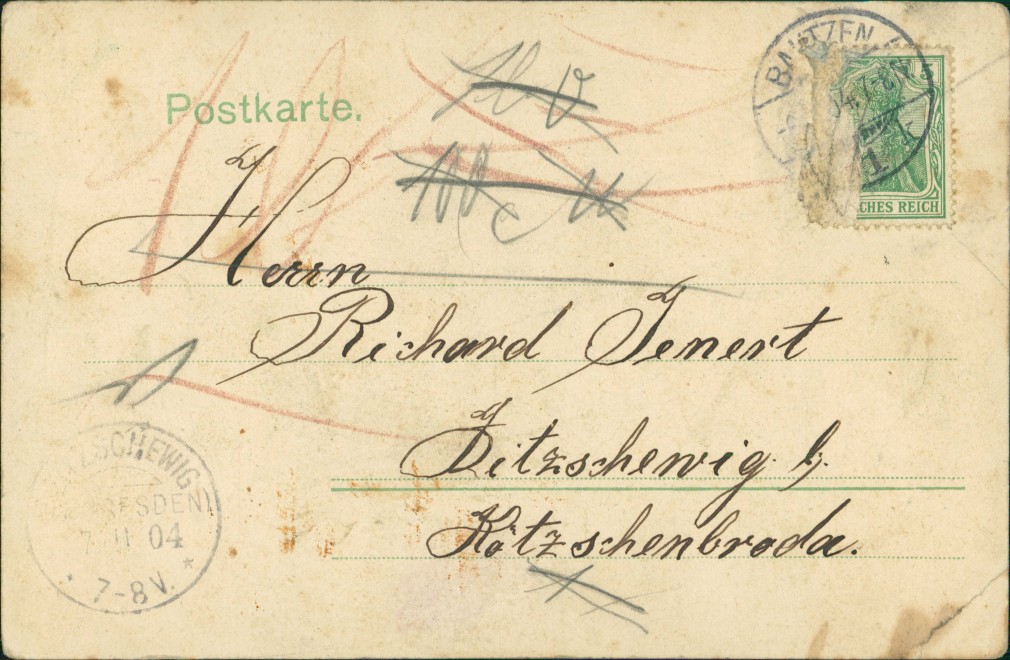 Postkarte.
BAUTZEN
7-8V
1
5
CHES REICH
Herrn
Richard Jenert
Zitzschewig b.
Kötzschenbroda.
SCHEWIG
ESDEN)
7. 11 04
7-8V.